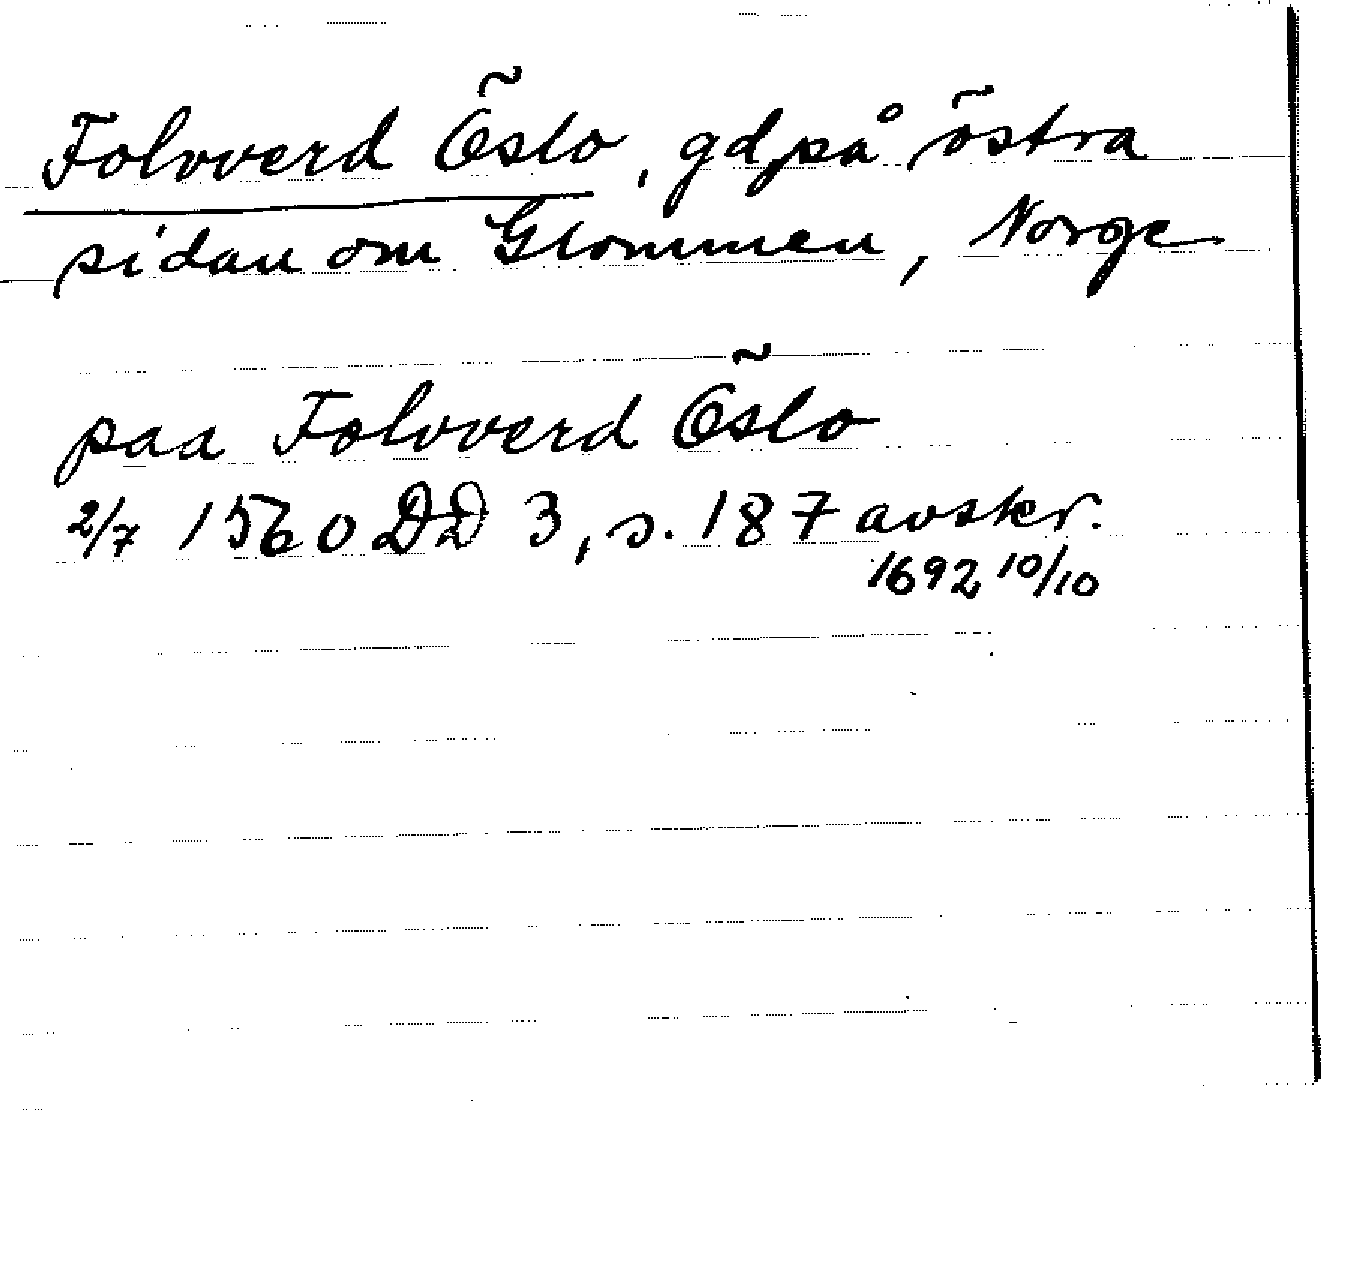 Folvverd Öslo, gd på östra
sidan om Glommen, Norge
paa Folvverd Öslo
2/7 1560 DD 3, s. 187 avskr.
1692 10/10